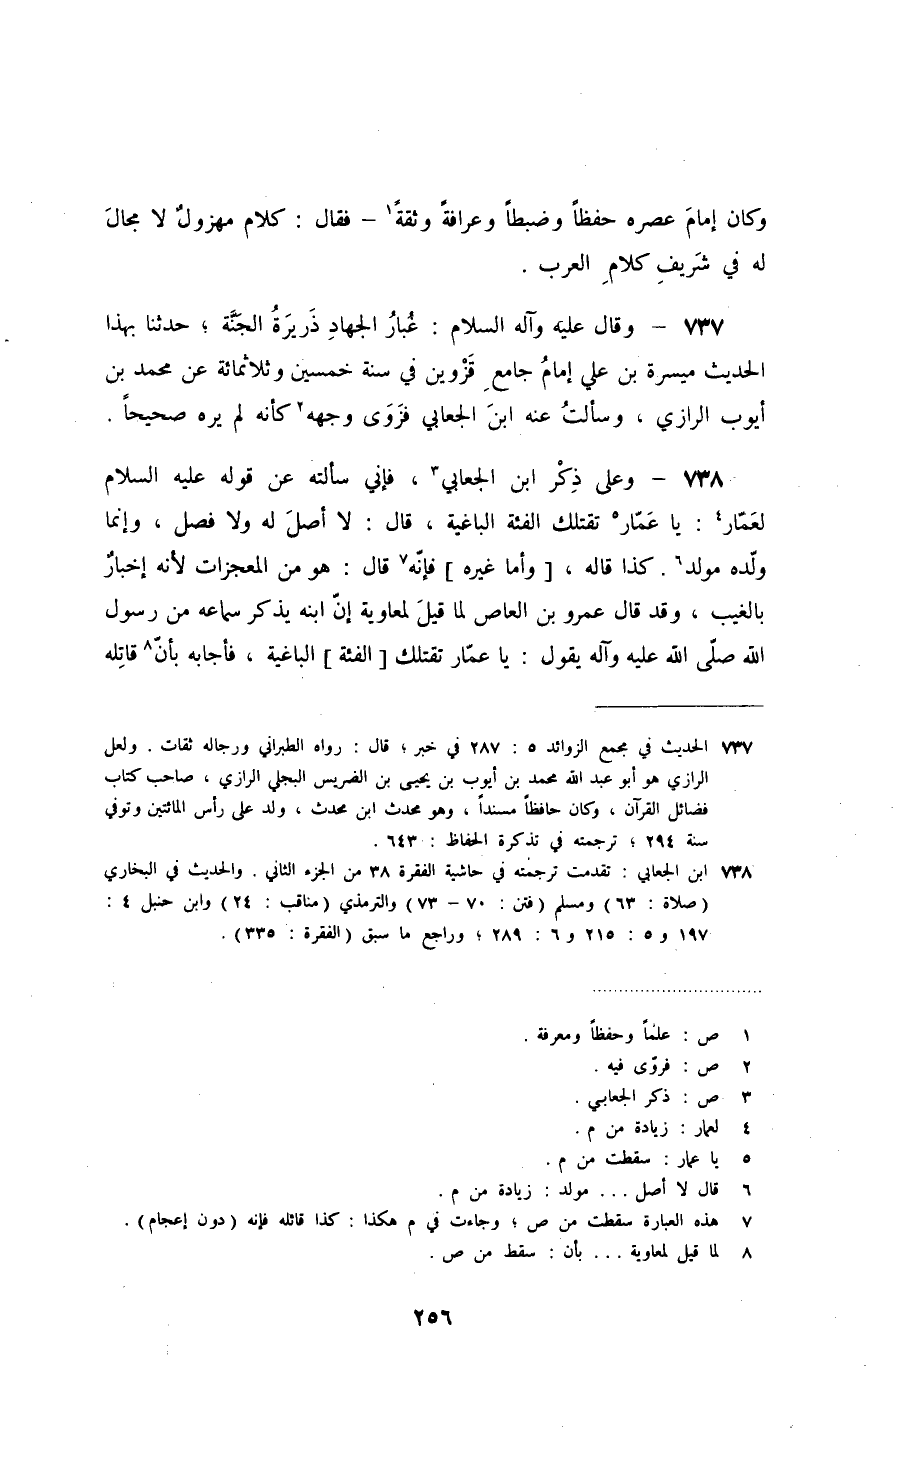 وكان إمامَ عصره حفظاً وضبطاً وعرافةً وثقةً١ – فقال : كلام مهزولٌ لا مجالَ
له في شَريفِ كلامِ العرب .
٧٣٧ – وقال عليه وآله السلام : غُبارُ الجهادِ ذَريرَةُ الجَنَّة ؛ حدثنا بهذا
الحديث ميسرة بن علي إمامُ جامعِ قَزْوين في سنة خمسين وثلاثمائة عن محمد بن
أيوب الرازي ، وسألتُ عنه ابنَ الجعابي فزَوَى وجهه٢ كأنه لم يره صحيحاً .
٧٣٨ – وعلى ذِكْر ابن الجعابي٣ ، فإني سألته عن قوله عليه السلام
لعَمّار٤ : يا عَمّار٥ تقتلك الفئة الباغية ، قال : لا أصلَ له ولا فصل ، وإنما
ولّده مولد٦ . كذا قاله ، [ وأما غيره ] فإنّه٧ قال : هو من المعجزات لأنه إخبارٌ
بالغيب ، وقد قال عمرو بن العاص لما قيلَ لمعاوية إنّ ابنه يذكر سماعه من رسول
الله صلّى الله عليه وآله يقول : يا عمّار تقتلك [ الفئة ] الباغية ، فأجابه بأنّ٨ قاتِله
٧٣٧ الحديث في مجمع الزوائد ٥ : ٢٨٧ في خبر ؛ قال : رواه الطبراني ورجاله ثقات . ولعل
الرازي هو أبو عبد الله محمد بن أيوب بن يحيى بن الضريس البجلي الرازي ، صاحب كتاب
فضائل القرآن ، وكان حافظاً مسنداً ، وهو محدث ابن محدث ، ولد على رأس المائتين وتوفي
سنة ٢٩٤ ؛ ترجمته في تذكرة الحفاظ : ٦٤٣ .
٧٣٨ ابن الجعابي : تقدمت ترجمته في حاشية الفقرة ٣٨ من الجزء الثاني . والحديث في البخاري
(صلاة : ٦٣) ومسلم (فتن : ٧٠ – ٧٣) والترمذي (مناقب : ٢٤) وابن حنبل ٤ :
١٩٧ و ٥ : ٢١٥ و ٦ : ٢٨٩ ؛ وراجع ما سبق (الفقرة : ٣٣٥) .
١ ص : علماً وحفظاً ومعرفة .
٢ ص : فروّى فيه .
٣ ص : ذكر الجعابي .
٤ لعمار : زيادة من م .
٥ يا عمار : سقطت من م .
٦ قال لا أصل ... مولد : زيادة من م .
٧ هذه العبارة سقطت من ص ؛ وجاءت في م هكذا : كذا قائله فإنه (دون إعجام) .
٨ لما قيل لمعاوية ... بأن : سقط من ص .
٢٥٦